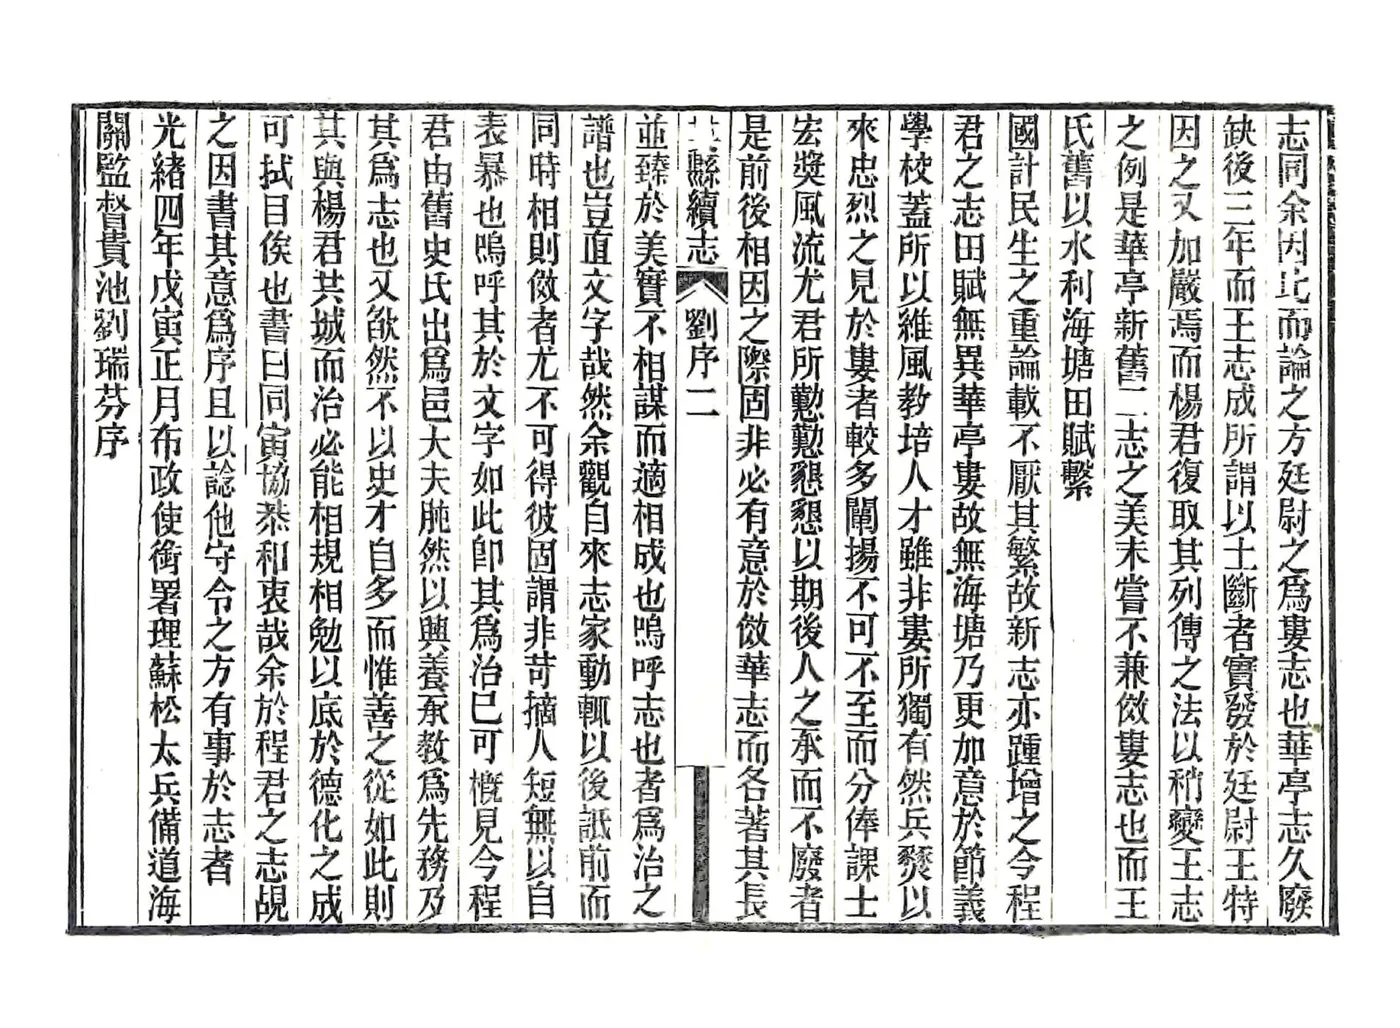 志同余因此而論之方廷尉之為婁志也華亭志久廢
缺後三年而王志成所謂以土斷者實發於廷尉王特
因之又加嚴焉而楊君復取其列傳之法以稍變王志
之例是華亭新舊二志之美未嘗不兼傚婁志也而王
氏舊以水利海塘田賦繫
國計民生之重論載不厭其繁故新志亦踵增之今程
君之志田賦無異華亭婁故無海塘乃更加意於節義
學校蓋所以維風教培人才雖非婁所獨有然兵燹以
來忠烈之見於婁者較多闡揚不可不至而分俸課士
宏獎風流尤君所懃懃懇懇以期後人之承而不廢者
是前後相因之際固非必有意於傚華志而各著其長
縣續志 劉序 二
並臻於美實不相謀而適相成也嗚呼志也者為治之
譜也豈直文字哉然余觀自來志家動輒以後詆前而
同時相則傚者尤不可得彼固謂非苛摘人短無以自
表暴也嗚呼其於文字如此卽其為治已可概見今程
君由舊史氏出為邑大夫肫然以興養承教為先務及
其為志也又欿然不以史才自多而惟善之從如此則
其與楊君共城而治必能相規相勉以底於德化之成
可拭目俟也書曰同寅協恭和衷哉余於程君之志覘
之因書其意為序且以諗他守令之方有事於志者
光緒四年戊寅正月布政使銜署理蘇松太兵備道海
關監督貴池劉瑞芬序